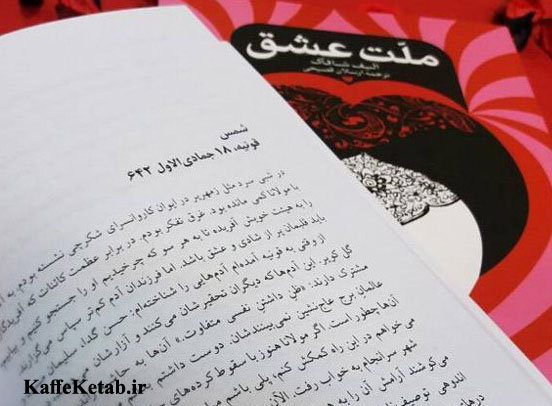 ملّت عشق
الیف شافاک
ترجمهٔ ارسلان فصیحی
شمس
قونیه، ۱۸ جمادی‌الاول ۶۴۲
در شبی سرد مثل زمهریر در ایوان کاروانسرای شکرچی نشسته بودم. به
با مولانا کمی مانده بود. غرق تفکر بودم. در برابر عظمت کائنات که آفریدگار
را به هیئت خویش آفریده تا به هر سو که چرخیدیم او را جستجو کنیم و بیابیم
باید قلبمان پر از شادی و عشق باشد. اما فرزندان آدم کم‌تر سپاس می‌گزارند
از وقتی به قونیه آمده‌ام آدم‌هایی را شناخته‌ام: حسن گدا، سلیمان
گل کویر. این آدم‌ها که دیگران تحقیرشان می‌کنند و آزارشان
مشترک دارند: «ظن داشتن نفسی متفاوت.» آن‌ها به حاشیه
عالمان برج عاج‌نشین نمی‌بینندشان. دوست داشتم
آن‌ها چطور است. اگر مولانا هنوز با سقوط کرده‌های
می‌خواهم در این راه کمکش کنم، پلی باشم
شهر سرانجام به خواب رفت. الآن
می‌کوشند آرامش آن را به هم
اندوهی توصیف
KaffeKetab.ir